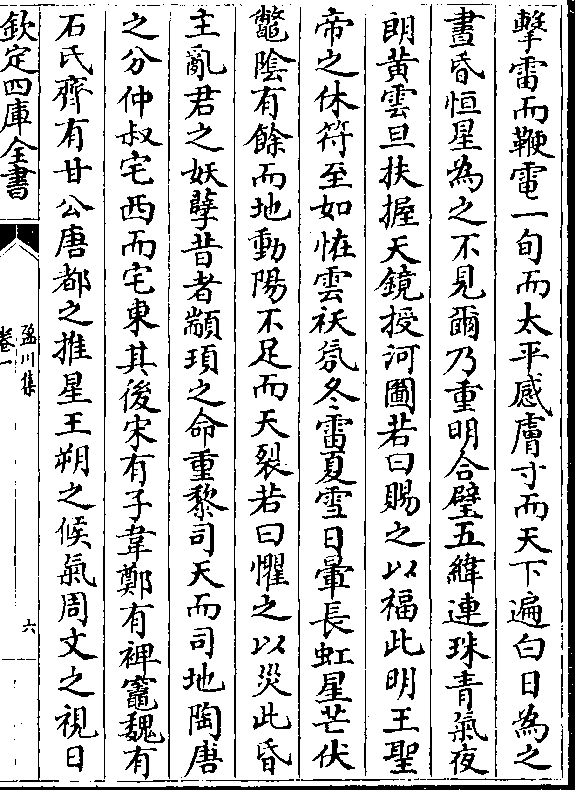 擊雷而鞭電一旬而太平感膚寸而天下遍白日為之
晝昏恒星為之不見爾乃重明合璧五緯連珠青氣夜
朗黃雲旦扶握天鏡授河圖若曰賜之以福此明王聖
帝之休符至如恠雲祅氛冬雷夏雪日暈長虹星芒伏
鼈陰有餘而地動陽不足而天裂若曰懼之以災此昏
主亂君之妖孽昔者顓頊之命重黎司天而司地陶唐
之分仲叔宅西而宅東其後宋有子韋鄭有裨竈魏有
石氏齊有甘公唐都之推星王朔之候氣周文之視日
欽定四庫全書
盈川集
卷一
六